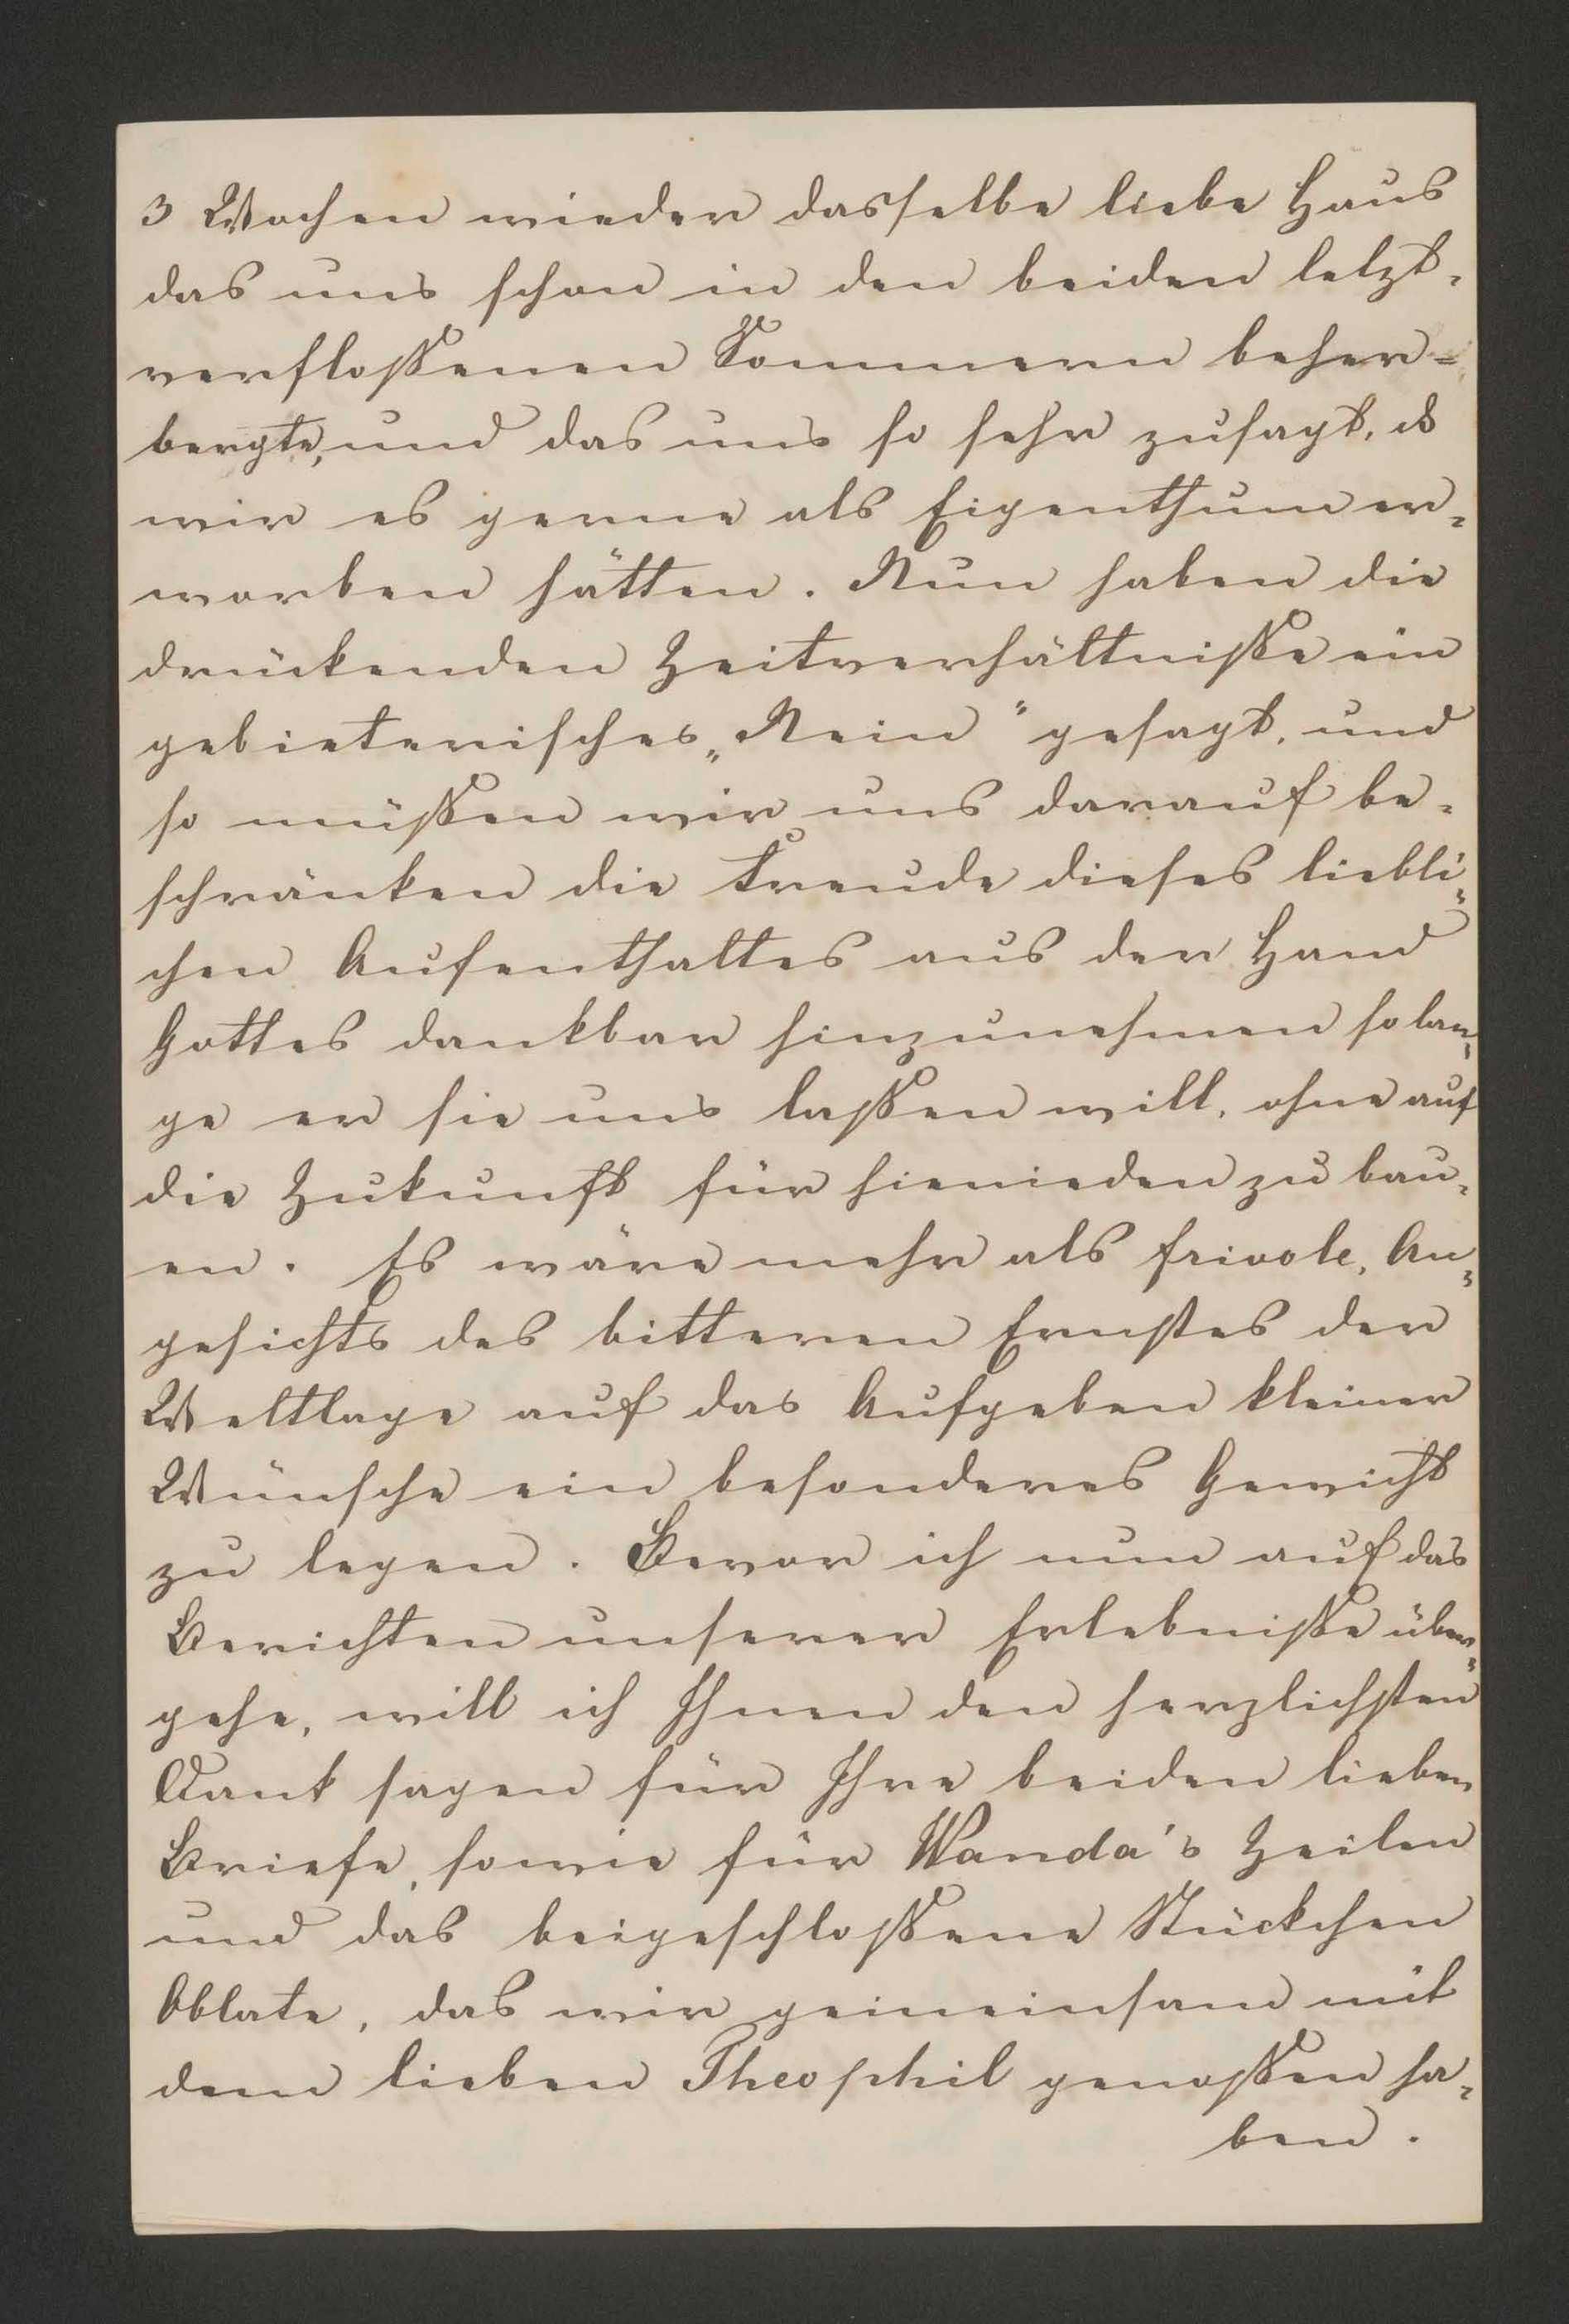 3 Wochen wieder dasselbe liebe Haus
das uns schon in den beiden letzt-
verfloßenen Sommern beher-
bergte, und das uns so sehr zusagt, dß
wir es gerne als Eigenthum er-
worben hätten. Nun haben die
drückenden Zeitverhältniße ein
gebieterisches „Nein“ gesagt, und
so müßen wir uns darauf be-
schränken die Freude dieses liebli-
chen Aufenthaltes aus der Hand
Gottes dankbar hinzunehmen so lan-
ge er sie uns laßen will, ohne auf
die Zukunft für hienieden zu bau-
en. Es wäre mehr als frivole, An-
gesichts des bitteren Ernstes der
Weltlage auf das Aufgeben kleiner
Wünsche ein besonderes Gewicht
zu legen. Bevor ich nun auf das
Berichten unserer Erlebniße über-
gehe, will ich Ihnen den herzlichsten
Dank sagen für Ihre beiden lieben
Briefe, sowie für Wanda's Zeilen
und das beigeschloßene Stückchen
Oblate, das wir gemeinsam mit
dem lieben Theophil genoßen ha-
ben.